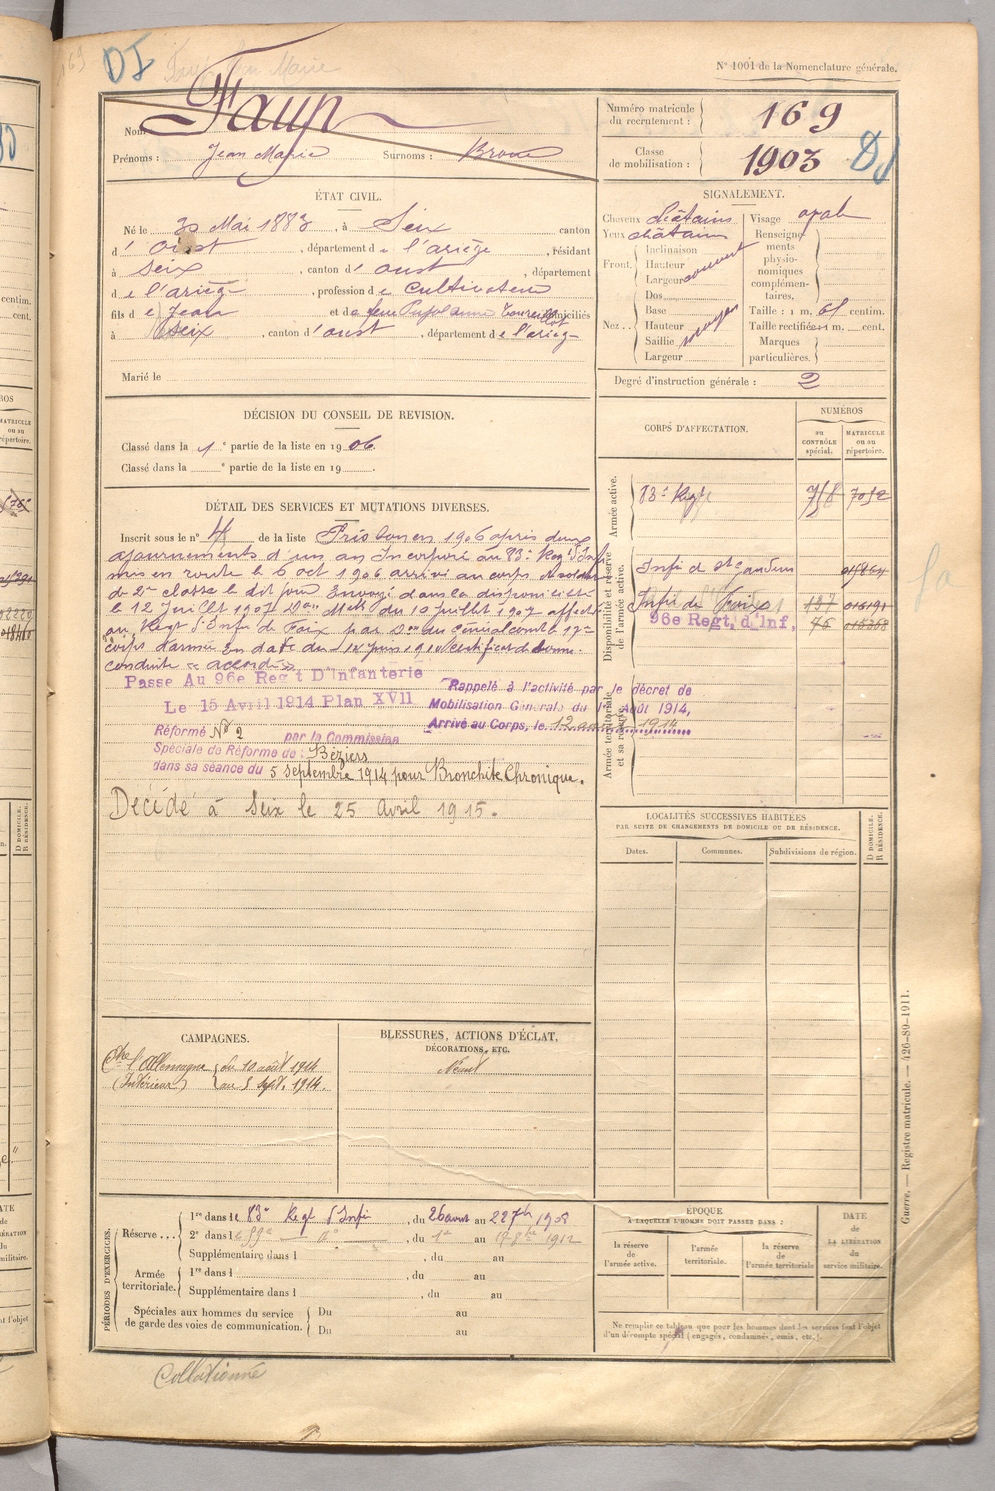 DJ
N° 1001 de la Nomenclature générale.
Nom Faup
Prénoms : Jean Marie Surnoms :
Numéro matricule du recrutement : 169
Classe de mobilisation : 1903
DJ
ÉTAT CIVIL.
Né le 30 Mai 1883, à Seix canton
d'oust, département de l'ariège, résidant
à Seix, canton d'oust, département
de l'ariège, profession de Cultivateur
fils de Jean et de feue Pujol anne domiciliés
à Seix, canton d'oust, département de l'ariège
Marié le
SIGNALEMENT.
Cheveux châtains Visage oval
Yeux châtains Renseigne-
ments
physio-
nomiques
complémen-
taires.
Front. Inclinaison
Hauteur
Largeur
Nez Dos
Base
Hauteur
Saillie
Largeur
moyen
Taille : 1 m. 61 centim.
Taille rectifiée : 1 m. cent.
Marques
particulières.
Degré d'instruction générale : 2
DÉCISION DU CONSEIL DE REVISION.
Classé dans la 1e partie de la liste en 1906.
Classé dans la e partie de la liste en 19
CORPS D'AFFECTATION.
NUMÉROS
au
CONTRÔLE
spécial.
MATRICULE
ou au
répertoire.
Armée active.
83e Regt
Disponibilité et réserve
de l'armée active.
Infie de St Gaudens
Infie de Foix 137 016191
96e Regt, d'Inf,
Armée territoriale
et sa réserve.
DÉTAIL DES SERVICES ET MUTATIONS DIVERSES.
Inscrit sous le n° de la liste bon en 1906 après deux
ajournements d'un an Incorporé au 83e Regt d'Inf
mis en route le 6 oct 1906 arrivé au corps et soldat
de 2e classe le dit jour Envoyé dans la disponibilité
le 12 Juillet 1907 Don Melle du 10 juillet 1907 affecté
au Regt d'Infie de Foix par Don du Général comt le 17e
corps d'armée En date du 1er juin 1910 Certificat de bonne
conduite « accordé »
Passe Au 96e Regt D'Infanterie
Le 15 Avril 1914 Plan XVII
Rappelé à l'activité par le décret de
Mobilisation Générale du 1er Août 1914,
Arrivé au Corps, le 12 août 1914
Réformé N° 2 par la Commission
Spéciale de Réforme de : Béziers
dans sa séance du 5 septembre 1914 pour Bronchite Chronique.
Décédé à Seix le 25 Avril 1915.
LOCALITÉS SUCCESSIVES HABITÉES
PAR SUITE DE CHANGEMENTS DE DOMICILE OU DE RÉSIDENCE.
Dates. Communes. Subdivisions de région. D DOMICILE. R RÉSIDENCE.
CAMPAGNES.
Ctre l'Allemagne du 10 août 1914
(Intérieur) au 5 Sept. 1914.
BLESSURES, ACTIONS D'ÉCLAT,
DÉCORATIONS, ETC.
Néant
PÉRIODES D'EXERCICES.
Réserve ... 1re dans le 83e Regt d'Infie, du 26 aout au 22 7bre 1908
2e dans l , du 1er au 1912
Supplémentaire dans l , du au
Armée
territoriale. 1re dans l , du au
Supplémentaire dans l , du au
Spéciales aux hommes du service
de garde des voies de communication. Du au
Du au
ÉPOQUE
À LAQUELLE L'HOMME DOIT PASSER DANS :
la réserve
de l'armée active.
l'armée
territoriale.
la réserve
de l'armée territoriale
DATE
de
LA LIBÉRATION
du
service militaire.
Ne remplir ce tableau que pour les hommes dont les services font l'objet
d'un décompte spécial (engagés, condamnés, omis, etc.).
Guerre. — Registre matricule. — 426-89-1911.
Collationné